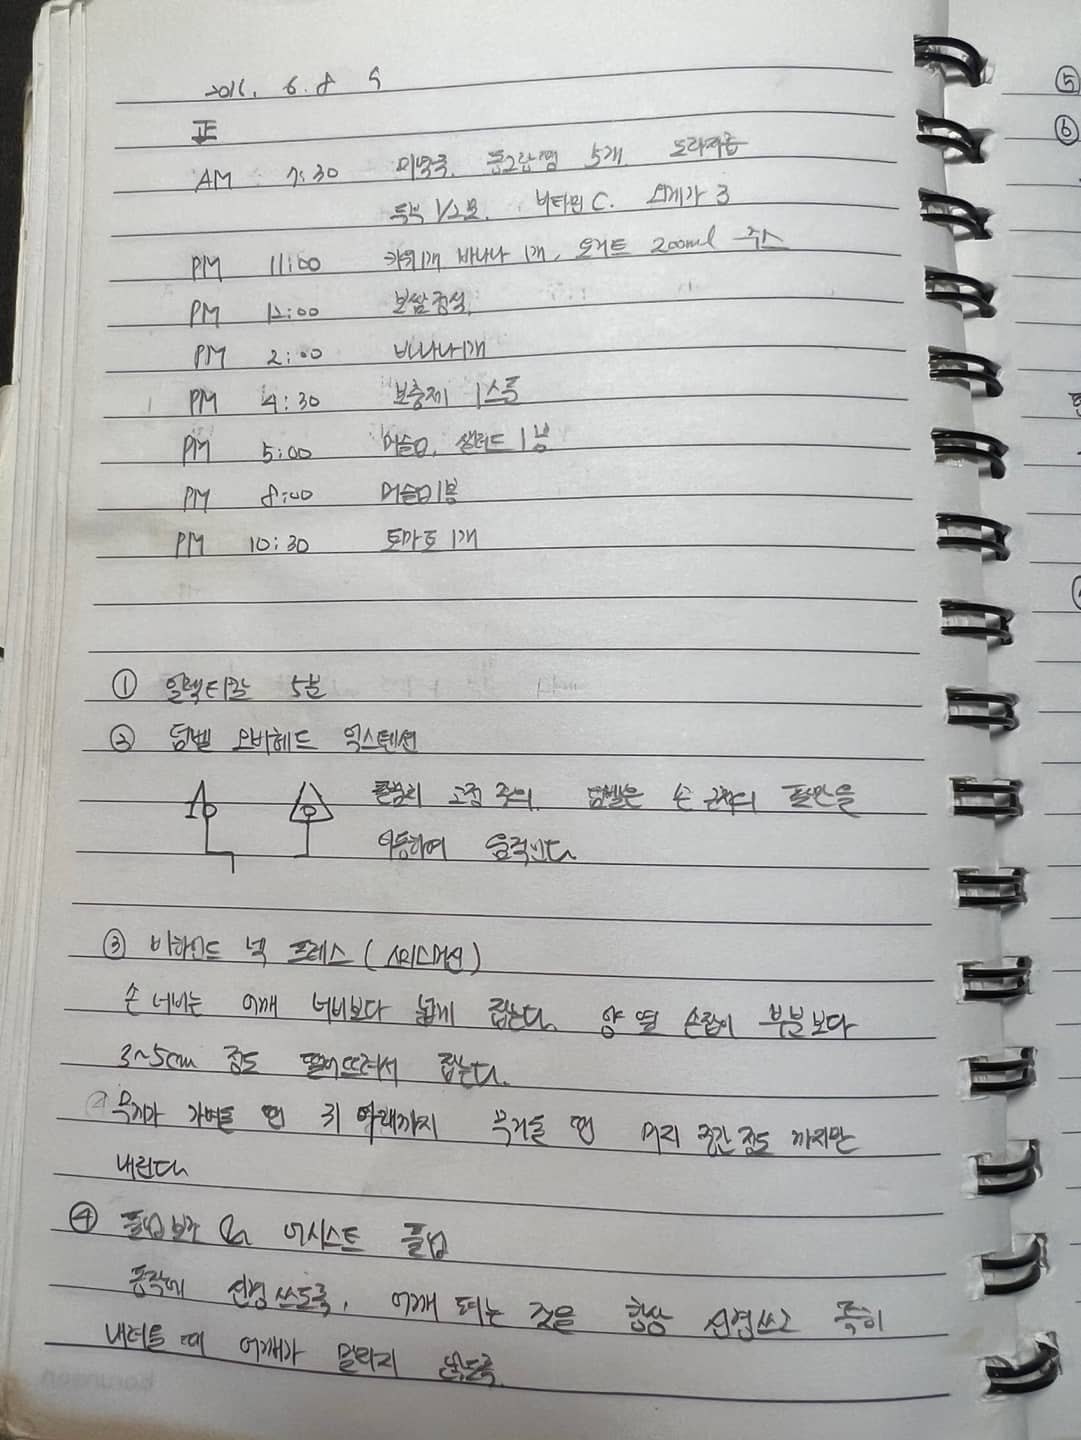 2016. 6. 8 수
正
AM 7:30 미역국. 동그랑땡 5개 도라지
두부 1/2모. 비타민 C. 오메가 3
PM 11:00 키위1개 바나나 1개, 요거트 200ml 주스
PM 12:00 보쌈정식.
PM 2:00 바나나1개
PM 4:30 보충제 1스푼
PM 5:00 머슬미, 샐러드 1봉
PM 8:00 머슬미1봉
PM 10:30 토마토 1개
① 일렉티칼 5분
② 덤벨 오버헤드 익스텐션
팔꿈치 고정 주의. 덤벨은 손
이동하여 움직인다
③ 비하인드 넥 프레스 (스미스머신)
손 너비는 어깨 너비보다 넓게 잡는다. 양 옆 손잡이 부분보다
3~5cm 정도 떨어뜨려서 잡는다.
무게가 가벼울 땐 귀 아래까지 무거울 땐 머리 중간 정도 까지만
내린다
④ 풀업보조 어시스트 풀업
동작에 신경쓰도록, 어깨 펴는 것을 항상 신경쓰고 특히
내려올 때 어깨가 말리지 않도록.
⑤
⑥